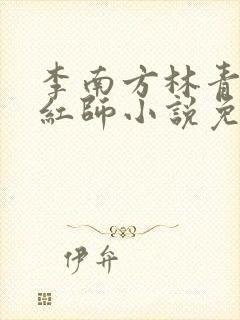 李南方林青
紅師小説免
伊弁